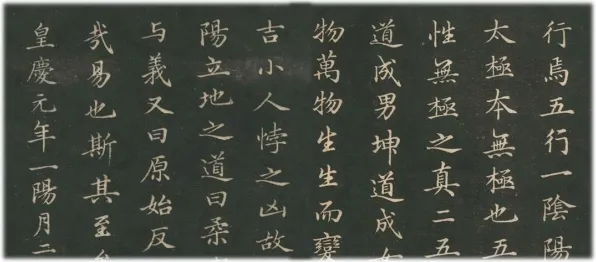 行焉五行一陰陽
太極本無極也五
性無極之真二五
道成男坤道成女
物萬物生生而變
吉小人悖之凶故
陽立地之道曰柔
与義又曰原始反
哉易也斯其至矣
皇慶元年一陽月二